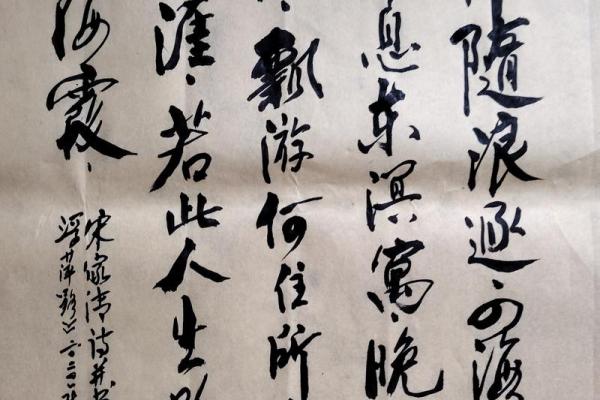 隨浪逐、
息东溟寓晚
飘游何住所
涯、若此人生
海霞、
宋家清诗并书
浮萍